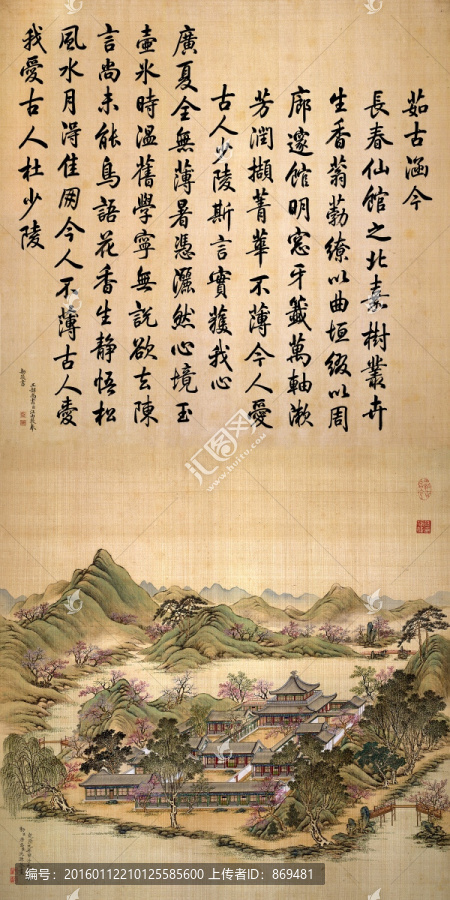 茹古涵今
長春仙館之北嘉樹叢卉
生香蓊葧繚以曲垣綴以周
廊邃館明窓牙籤萬軸漱
芳潤擷菁華不薄今人愛
古人少陵斯言實獲我心
廣夏全無薄暑憑灑然心境玉
壺冰時溫舊學寧無說欲去陳
言尚未能鳥語花香生靜悟松
風水月淂佳朋今人不薄古人愛
我愛古人杜少陵
工部尚書臣汪由敦奉
勅敬書
汇图网
www.huitu.com
编号：20160112210125585600 上传者ID：869481